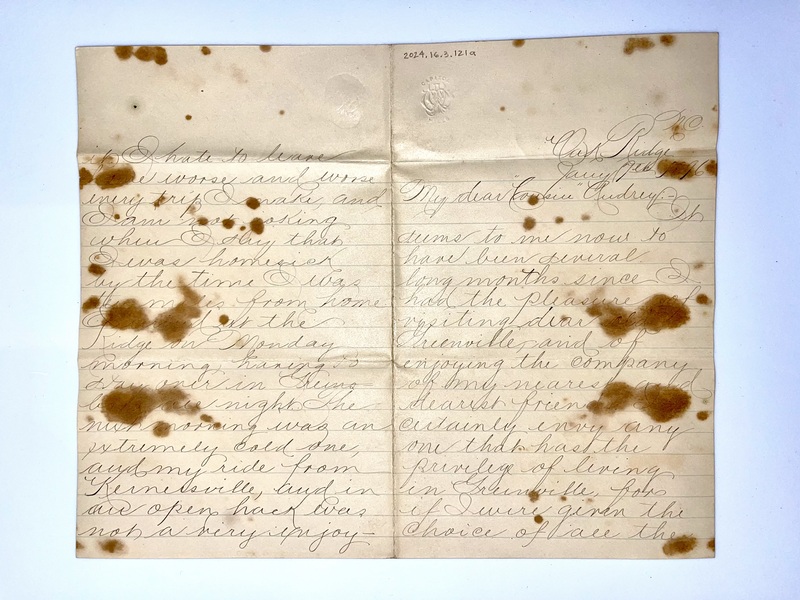 2024.16.3.121a
N.C.
Oak Ridge
Jany
My dear "Cousin" Audrey:-
It
seems to me now to
have been several
long months since I
had the pleasure of
visiting dear
Greenville, and of
enjoying the company
of my nearest and
dearest friends
certainly envy any
one that has the
privilege of living
in Greenville, for
if I were given the
choice of all the
it. I hate to leave
worse and worse
every trip I make, and
I am not joking
when I say that
I was homesick
by the time I was
miles from home
at the
Ridge on Monday
morning, having to
stay over in Greens-
boro one night. The
next morning was an
extremely cold one,
and my ride from
Kernersville, and in
an open hack was
not a very enjoy-